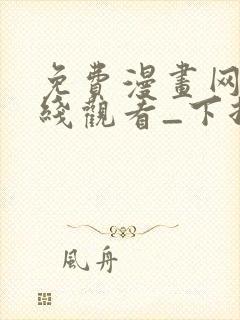 免費漫畫网
綫觀看_下
風舟